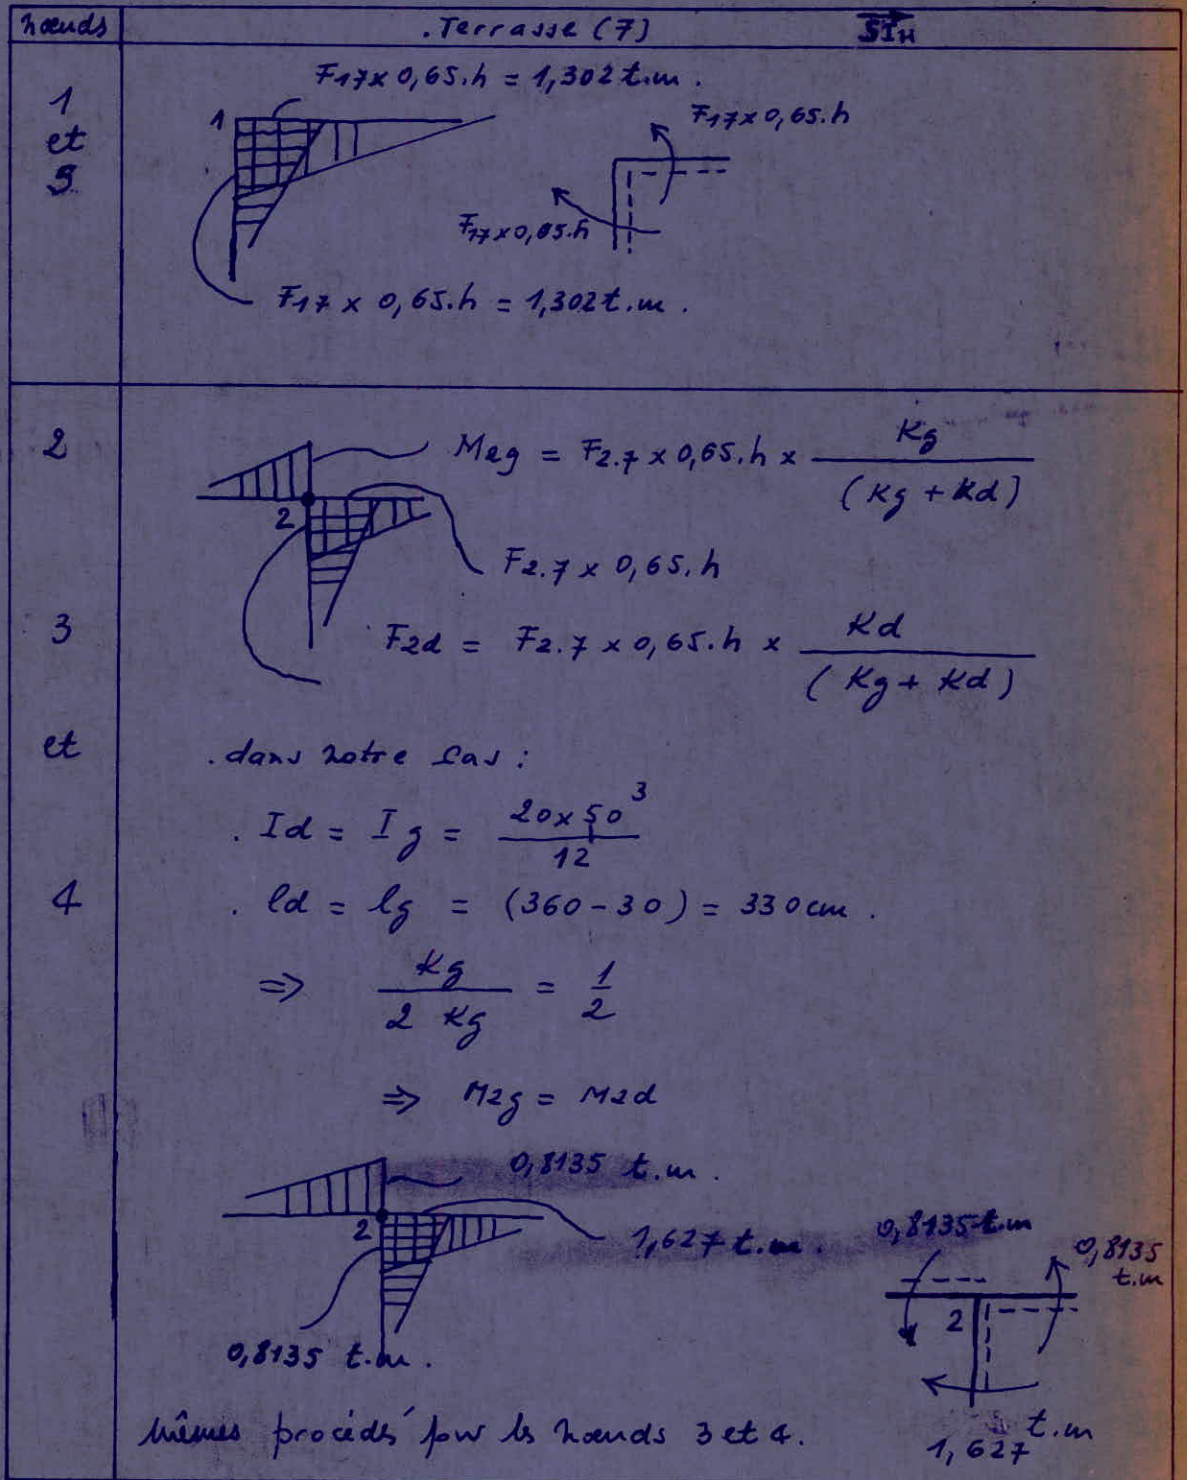 nœuds
. Terrasse (7)
SIH
1
et
5
F17 x 0,65.h = 1,302 t.m.
1
F17 x 0,65.h
F17 x 0,65.h
F17 x 0,65.h = 1,302 t.m.
2
M2g = F2.7 x 0,65.h x Kg / (Kg + Kd)
2
F2.7 x 0,65.h
3
F2d = F2.7 x 0,65.h x Kd / (Kg + Kd)
et
. dans notre cas :
. Id = Ig = 20 x 50³ / 12
4
. ld = lg = (360 - 30) = 330 cm.
⇒ Kg / 2 Kg = 1 / 2
⇒ M2g = M2d
0,8135 t.m.
2
1,627 t.m.
0,8135 t.m.
0,8135 t.m
0,8135
t.m
2
1,627 t.m
mêmes procédés pour les nœuds 3 et 4.